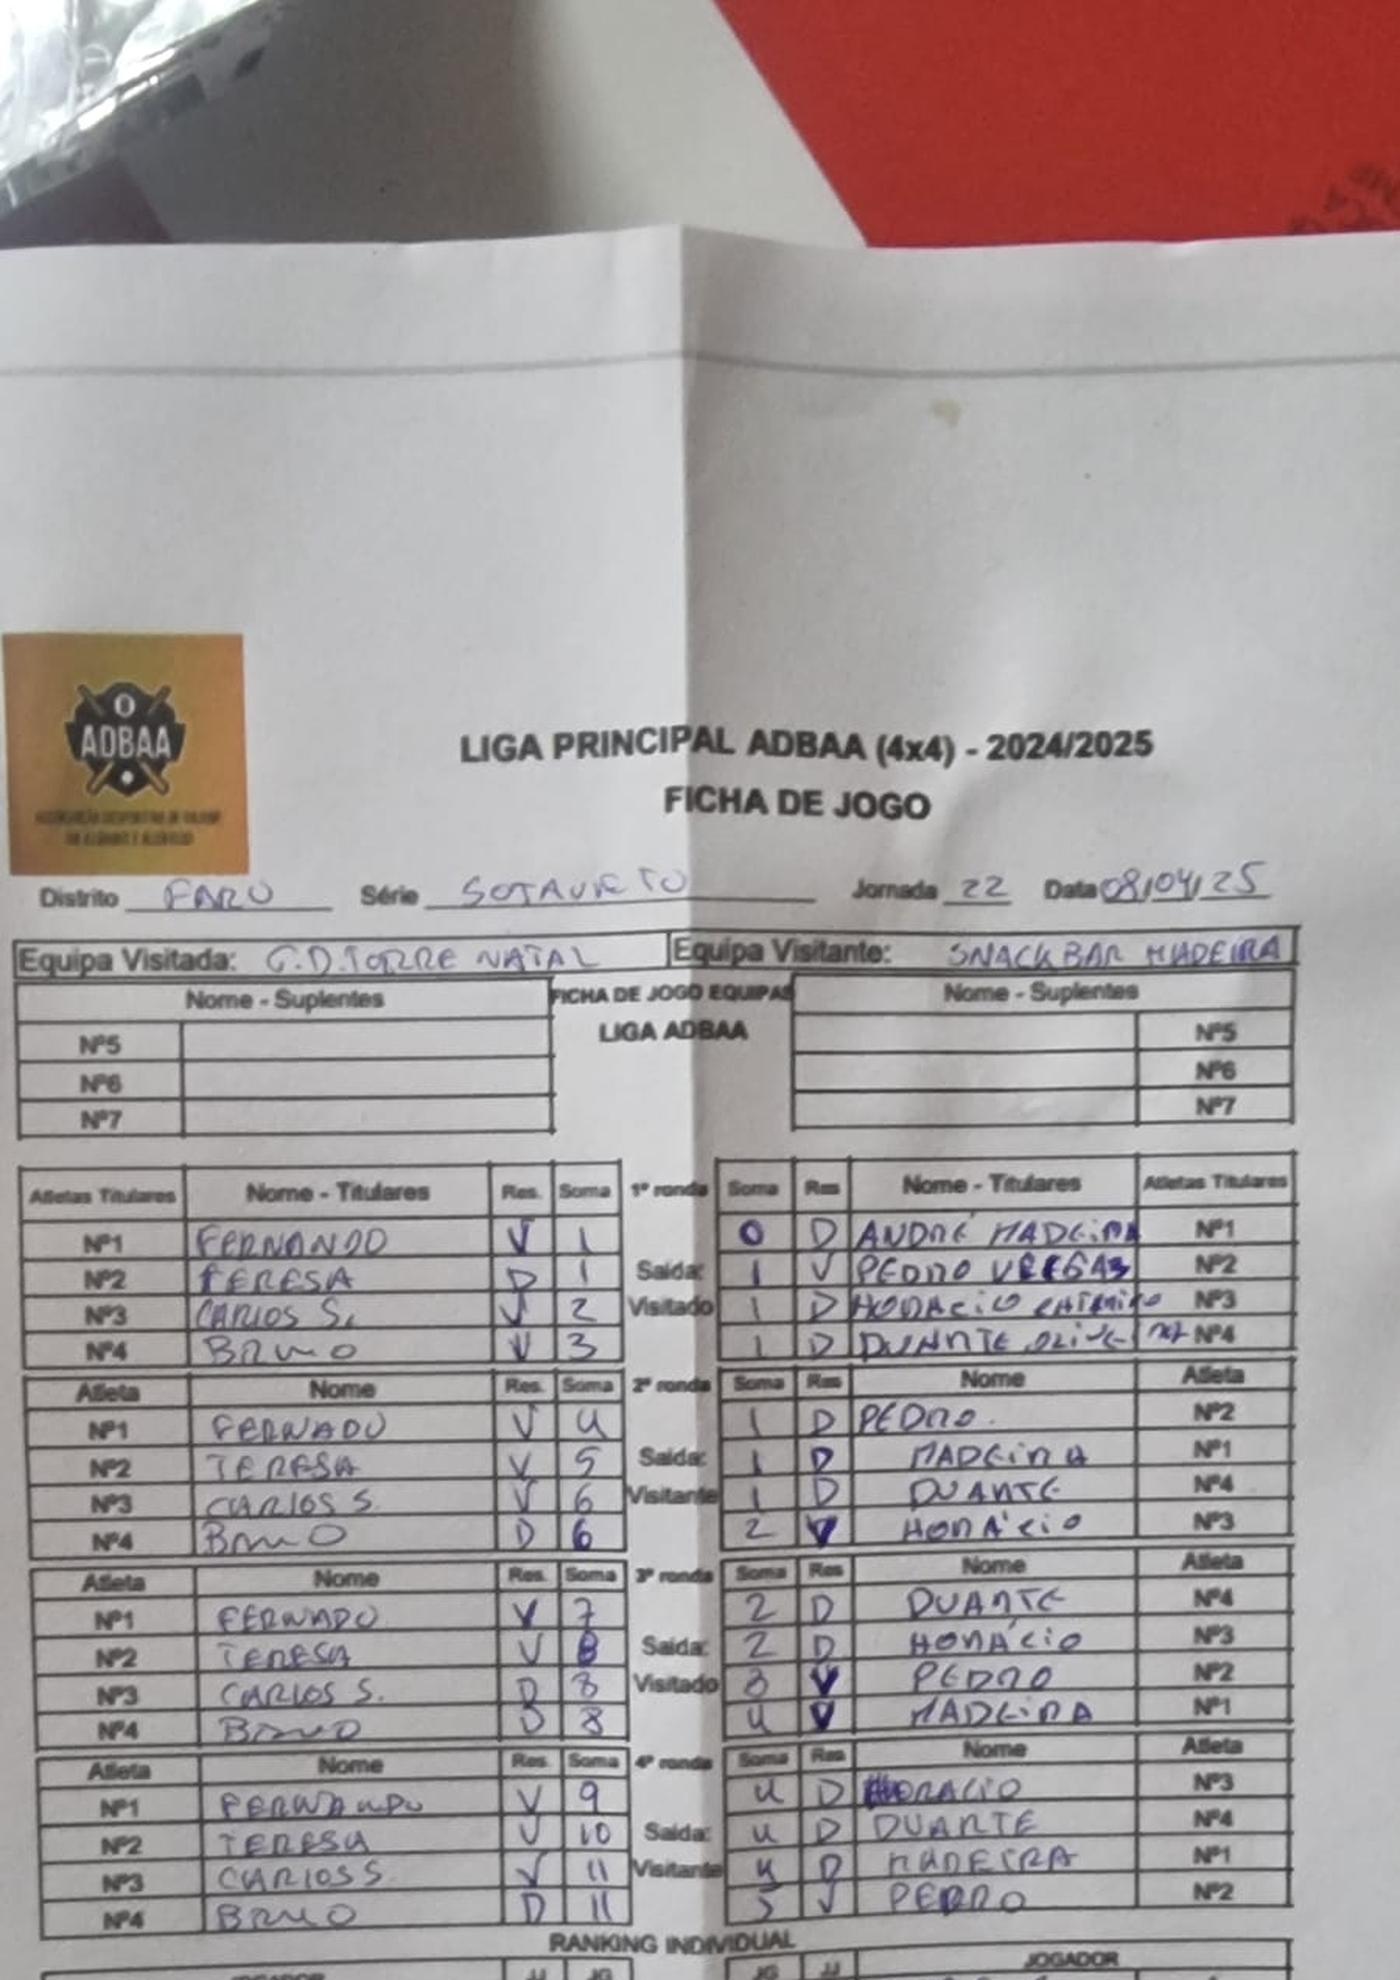 ADBAA
LIGA PRINCIPAL ADBAA (4x4) - 2024/2025
FICHA DE JOGO
Distrito FARO Série SOTAVETO Jornada 22 Data 08/04/25
Equipa Visitada: G.D.TORRE NATAL Equipa Visitante: SNACK BAR MADEIRA
Nome - Suplentes FICHA DE JOGO EQUIPAS Nome - Suplentes
LIGA ADBAA
Nº5 Nº5
Nº6 Nº6
Nº7 Nº7
Atletas Titulares Nome - Titulares Res. Soma 1ª ronda Soma Res Nome - Titulares Atletas Titulares
Nº1 FERNANDO V 1 0 D ANDRÉ MADEIRA Nº1
Nº2 TERESA D 1 Saida: 1 V PEDRO Nº2
Nº3 CARLOS S. V 2 Visitado 1 D HORACIO Nº3
Nº4 BRUNO V 3 1 D DUARTE Nº4
Atleta Nome Res. Soma 2ª ronda Soma Res Nome Atleta
Nº1 FERNADO V 4 1 D PEDRO. Nº2
Nº2 TERESA V 5 Saida: 1 D MADEIRA Nº1
Nº3 CARLOS S. V 6 Visitante 1 D DUARTE Nº4
Nº4 BRUNO D 6 2 V HORÁCIO Nº3
Atleta Nome Res. Soma 3ª ronda Soma Res Nome Atleta
Nº1 FERNADO. V 7 2 D DUARTE Nº4
Nº2 TERESA V 8 Saida: 2 D HORÁCIO Nº3
Nº3 CARLOS S. D 8 Visitado 3 V PEDRO Nº2
Nº4 BRUNO D 8 4 V MADEIRA Nº1
Atleta Nome Res. Soma 4ª ronda Soma Res Nome Atleta
Nº1 FERNANDO V 9 4 D HORACIO Nº3
Nº2 TERESA V 10 Saida: 4 D DUARTE Nº4
Nº3 CARLOS S. V 11 Visitante 4 D MADEIRA Nº1
Nº4 BRUNO D 11 5 V PEDRO Nº2
RANKING INDIVIDUAL
JOGADOR JJ JG JG JJ JOGADOR